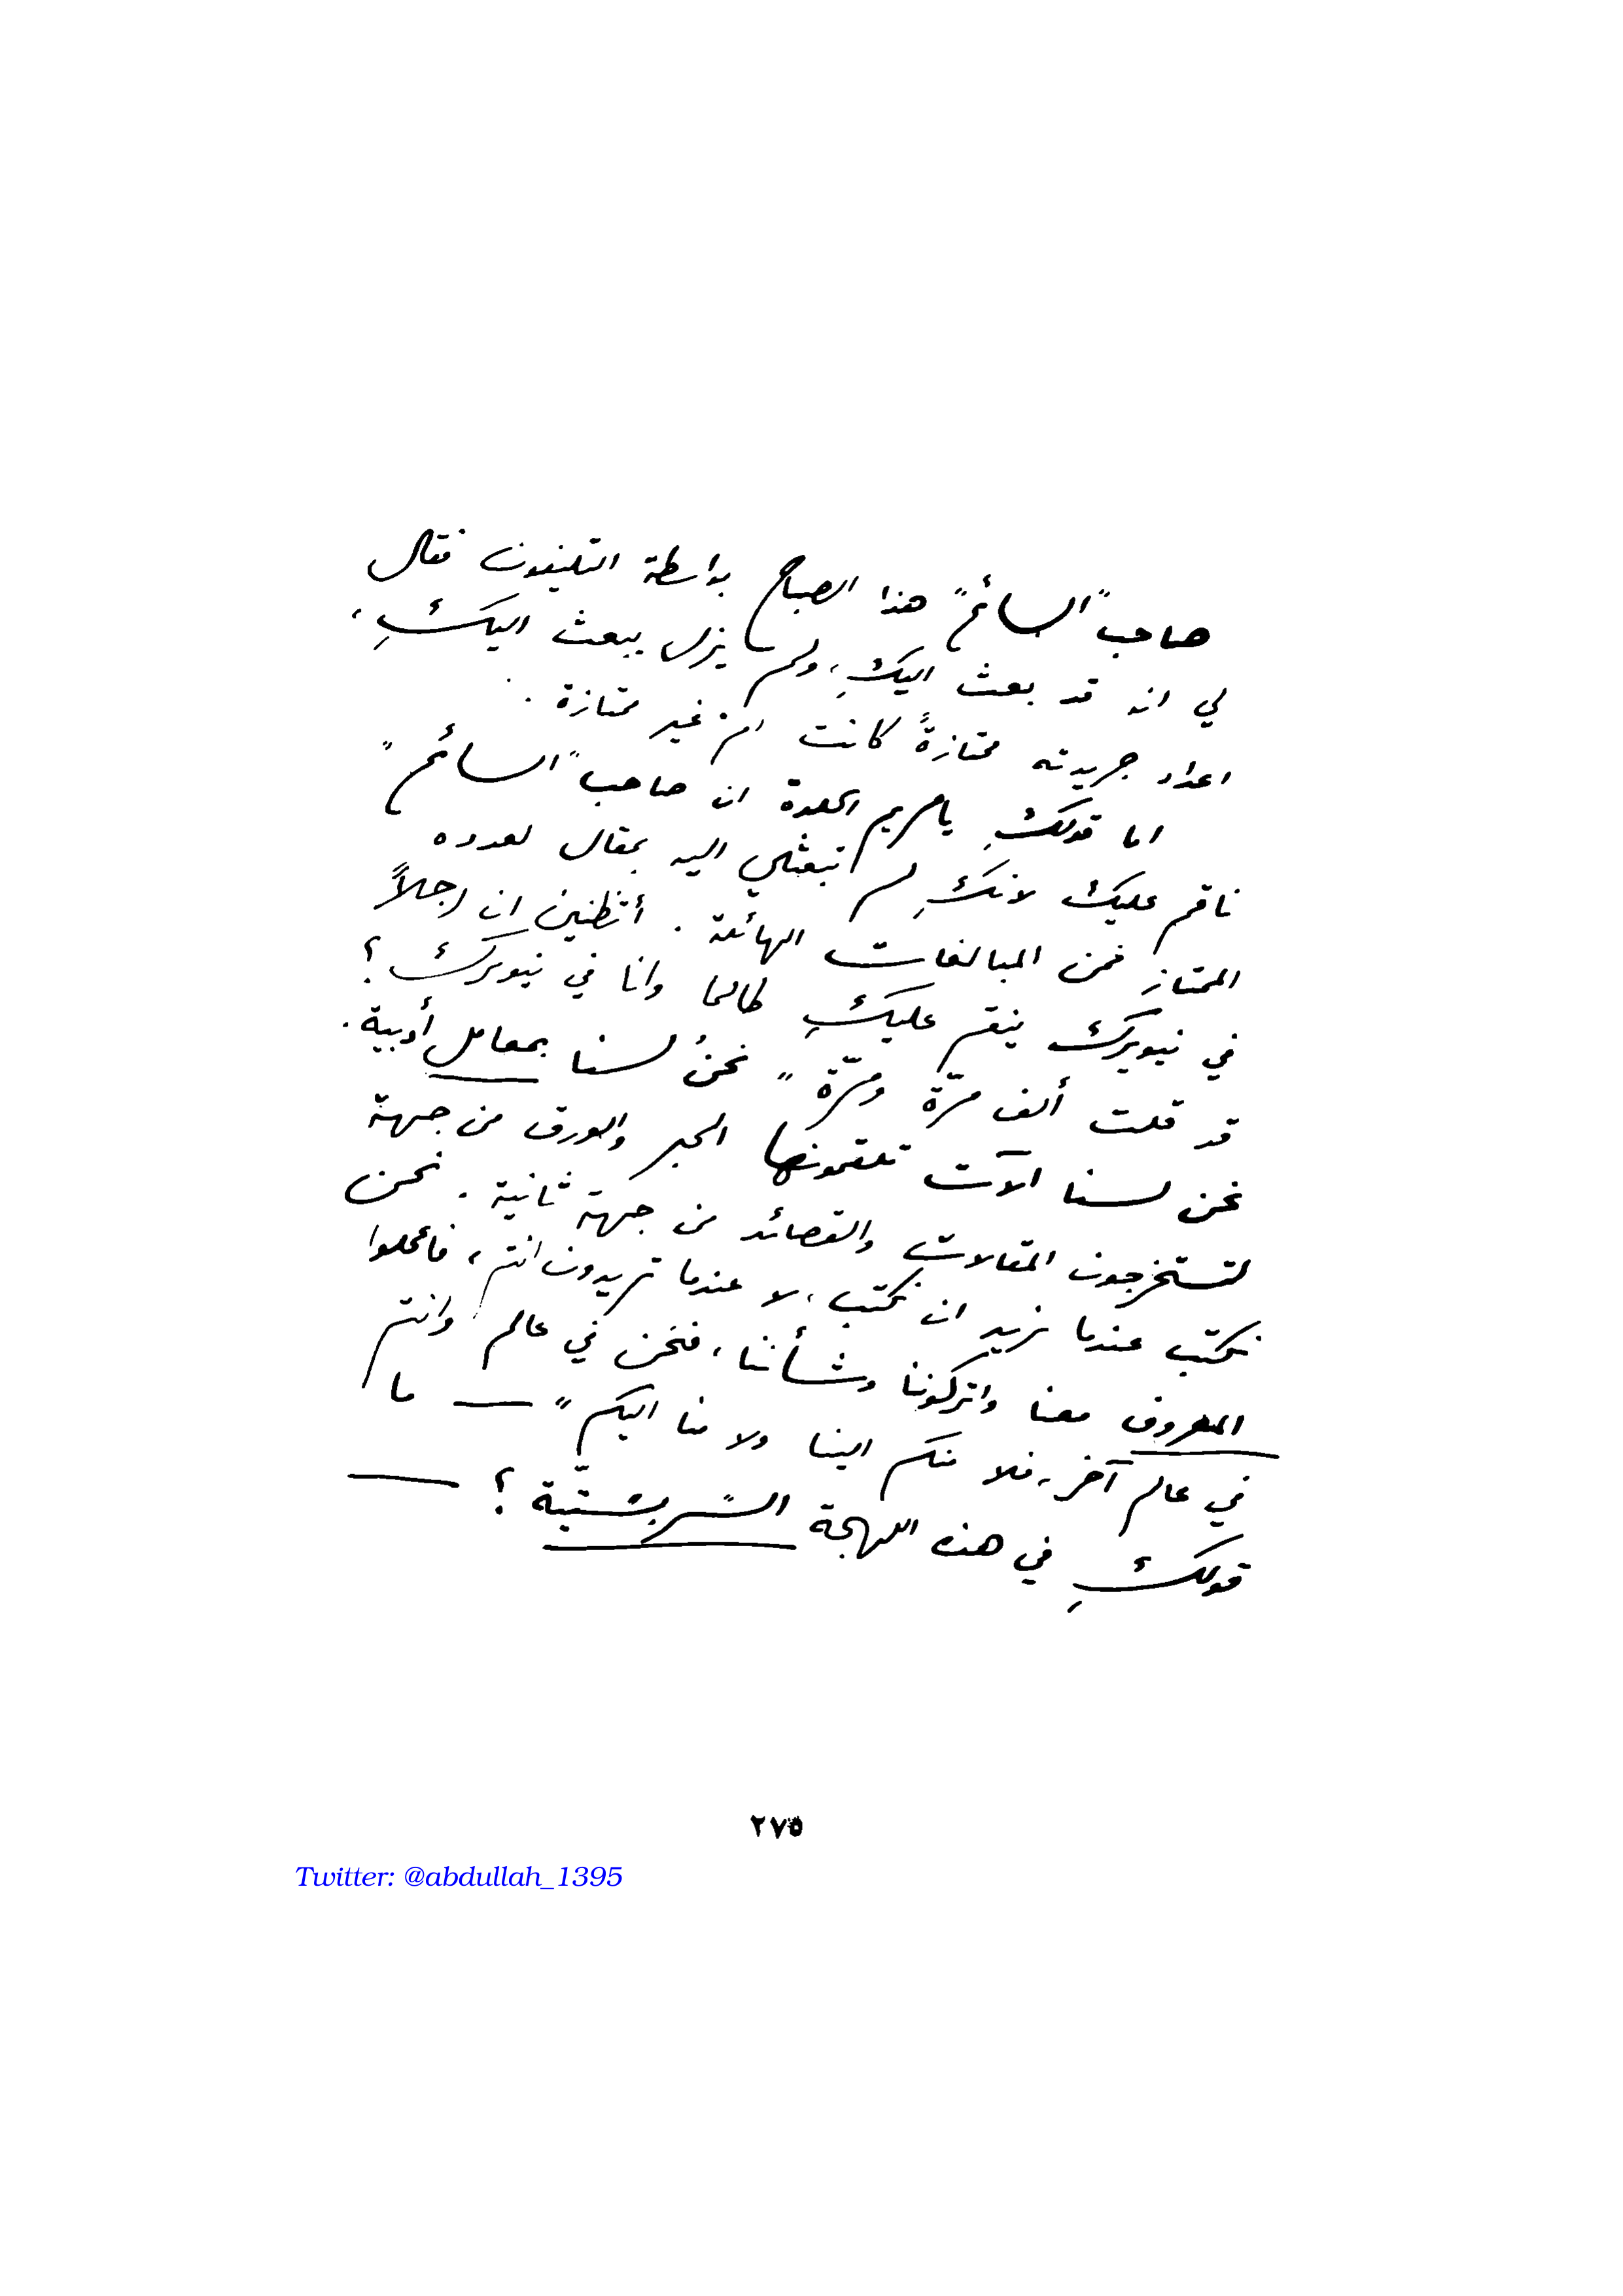 صاحب "السائح" هذا الصباح بواسطة التليفون فقال
لي انه قد بعث اليكِ، ولم يزل يبعث اليكِ،
اعداد جريدته ممتازةً كانت ام غير ممتازة.
اما قولكِ يا مريم الحلوة ان صاحب "السائح"
ناقم عليك لانكِ لم تبعثي اليه بمقال لعدده
الممتاز فمن المبالغات الهائلة. أتظنين ان رجلاً
في نيويرك ينقم عليكِ طالما وانا في نيويرك؟
قد قلت ألف مرّة ومرّة "نحنُ لسنا بمعامل أدبية.
نحن لسنا الآت تلقمونها الحبر والورق من جهة
لتستخرجون المقالات والقصائد من جهة ثانية. نحن
نكتب عندما نريد ان نكتب، لا عندما تريدون انتم، فاعملوا
المعروف معنا واتركونا وشأننا، فنحن في عالم وانتم
في عالم آخر، فلا منكم الينا ولا منا اليكم" — ما
قولكِ في هذه اللهجة "الشربشتيّة"؟ —
٢٧٥
Twitter: @abdullah_1395